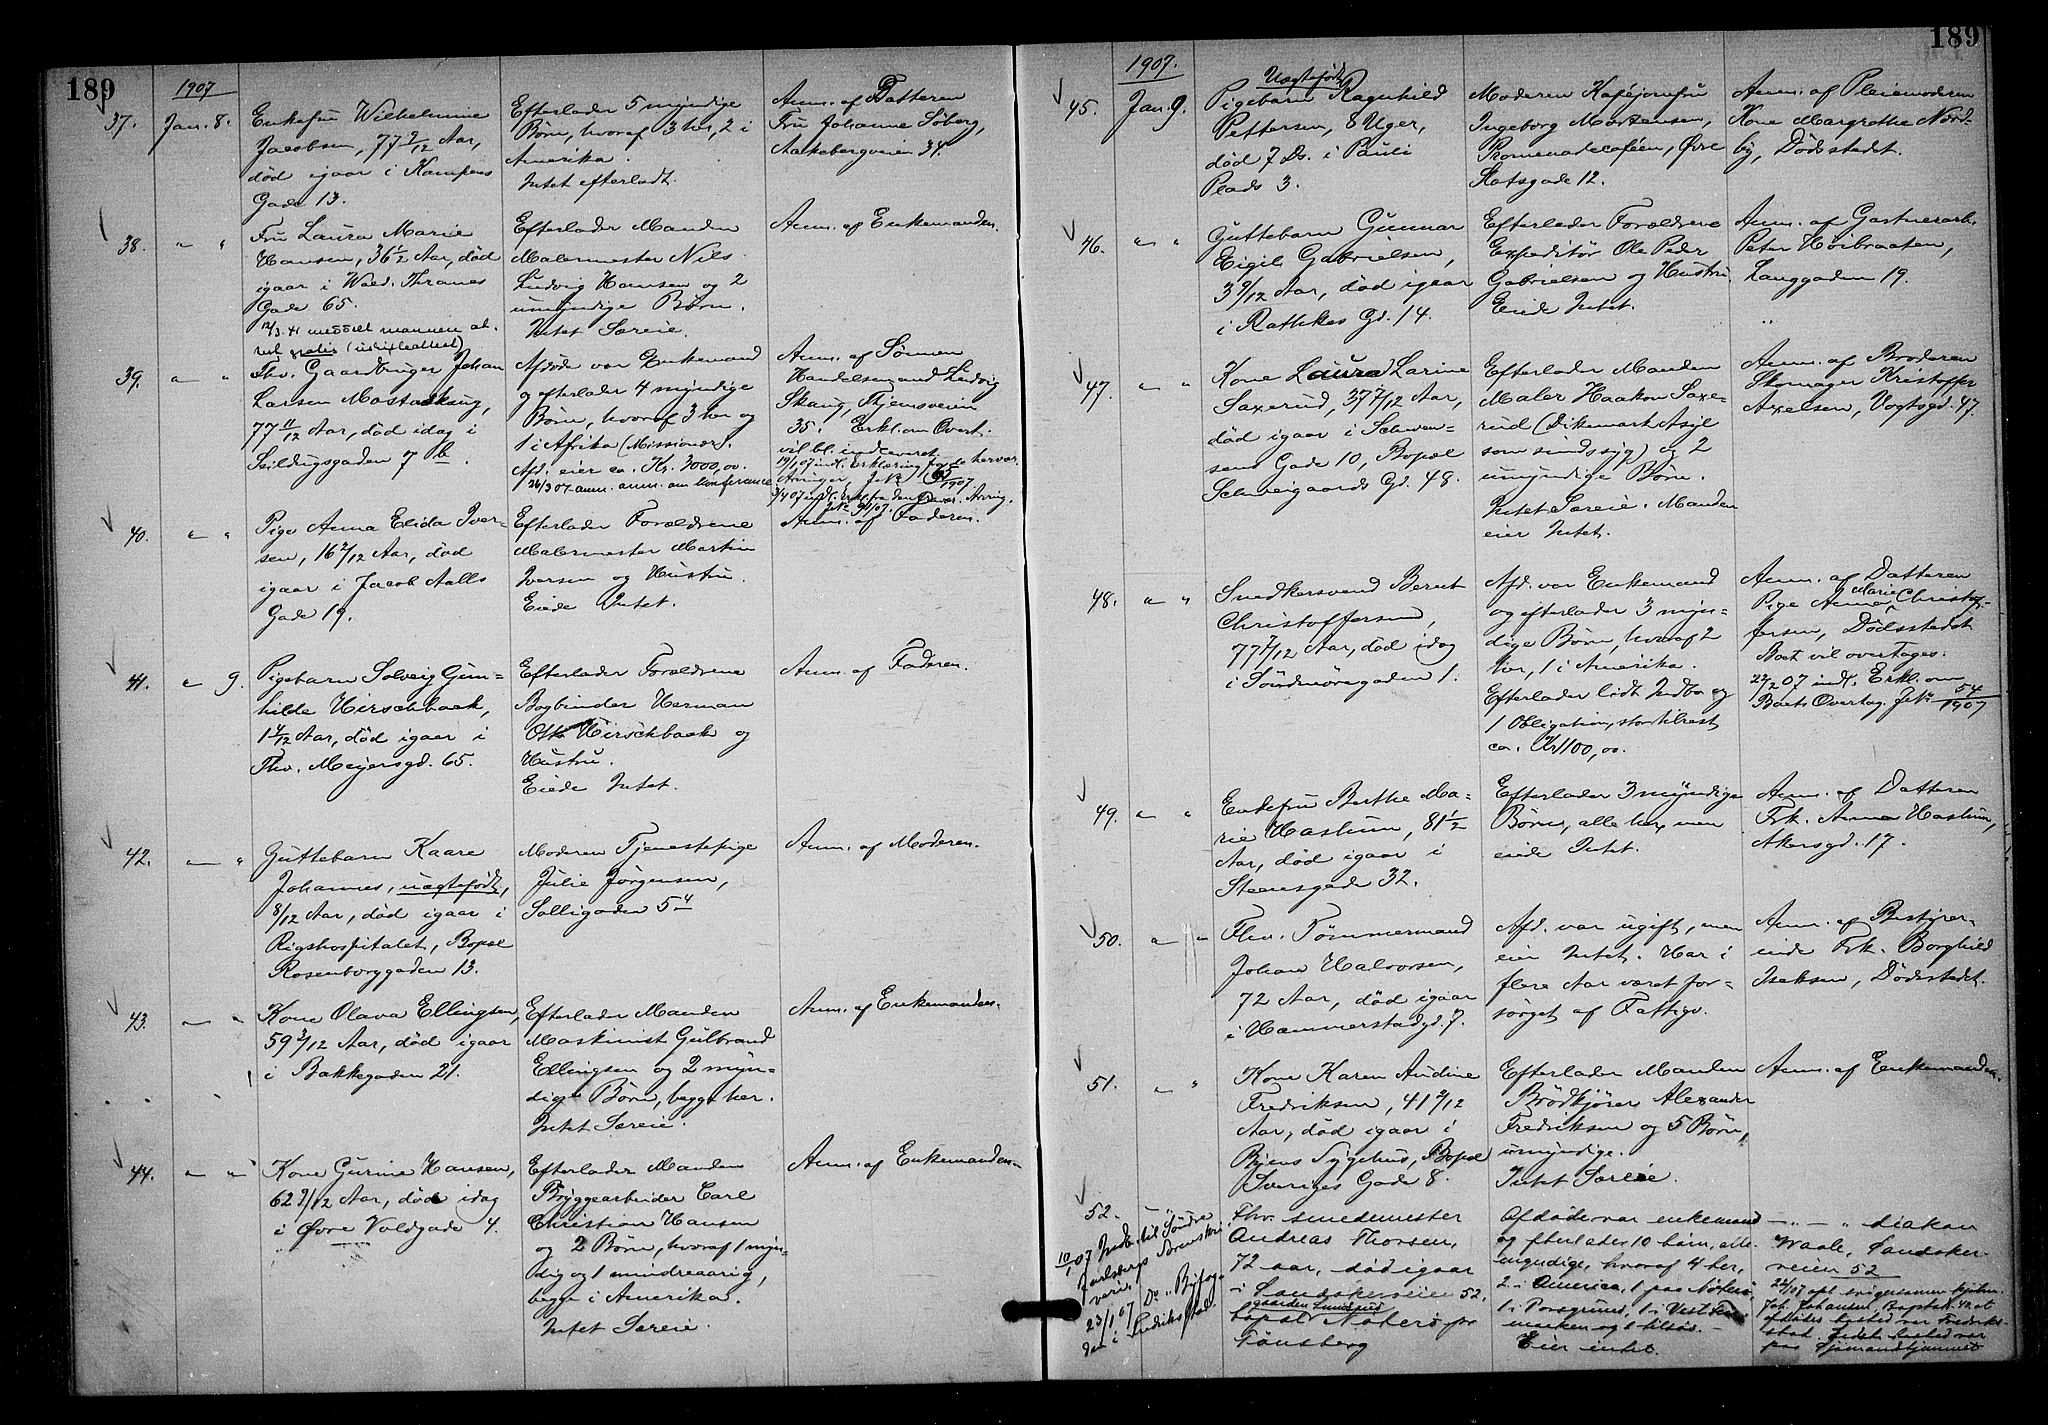 189
1907
37.
Jan. 8.
Enkefru Wilhelmine
Jacobsen, 77 2/12 Aar,
død igaar i Kampens
Gade 13.
Efterlader 5 myndige
Børn, hvoraf 3 her, 2 i
Amerika.
Intet efterladt.
Anm. af Datteren
Fru Johanne Søberg,
Aakebergveien 34.
38.
" "
Fru Laura Marie
Hansen, 36 1/2 Aar, død
igaar i Wald. Thranes
Gade 65.
12/3.41 meddelt mannen at-
test gratis
Efterlader Manden
Malermester Nils
Ludvig Hansen og 2
umyndige Børn.
Intet Særeie.
Anm. af Enkemanden.
39.
" "
Fhv. Gaardbruger Johan
Larsen Mostadskaug,
77 11/12 Aar, død idag i
Seilduggaden 7 b.
Afdøde var Enkemand
og efterlader 4 myndige
Børn, hvoraf 3 her og
1 i Afrika (Missionær).
Afd. eier ca. Kr. 3000,00.
26/3 07 anm. anm. om konference
Anm. af Sønnen
Handelsmand Ludvig
Skaug, Hjemsveien
35. Erkl. om Overt.
vil bl. indleveret.
19/1 07 indl. Erklæring fra de hervær.
Arvinger, J.N°
1907.
3/4 07 indl. Erkl. fra den Arving,
J.N° 91/07.
40.
" "
Pige Anna Elida Iver-
sen, 16 2/12 Aar, død
igaar i Jacob Aalls
Gade 19.
Efterlader Forældrene
Malermester Martin
Iversen og Hustru.
Eiede Intet.
Anm. af Faderen.
41.
" 9.
Pigebarn Solveig Gun-
hilde Hirschback,
1 7/12 Aar, død igaar i
Thv. Meyersgd. 65.
Efterlader Forældrene
Bogbinder Herman
Otto Hirschback og
Hustru.
Eiede Intet.
Anm. af Faderen.
42.
" "
Guttebarn Kaare
Johannes, uægtefødt,
8/12 Aar, død igaar i
Rigshospitalet, Bopæl
Rosenborggaden 13.
Moderen Tjenestepige
Julie Jørgensen,
Solligaden 5 4
Anm. af Moderen.
43.
" "
Kone Olava Ellingsen,
59 3/12 Aar, død igaar
i Bakkegaden 21.
Efterlader Manden
Maskinist Gulbrand
Ellingsen og 2 myn-
dige Børn, begge her.
Intet Særeie.
Anm. af Enkemanden.
44.
" "
Kone Gurine Hansen,
62 9/12 Aar, død idag
i Øvre Voldgade 4.
Efterlader Manden
Bryggearbeider Carl
Christian Hansen
og 2 Børn, hvoraf 1 myn-
dig og 1 mindreaarig,
begge i Amerika.
Intet Særeie.
Anm. af Enkemanden.
189
1907.
45.
Jan. 9.
Uægtefødt
Pigebarn Ragnhild
Pettersen, 8 Uger,
død 7 Ds. i Pauli
Plads 3.
Moderen Kaféjomfru
Ingeborg Mortensen,
Promenadecaféen, Øvre
Slotsgade 12.
Anm. af Pleiemoderen
Kone Margrethe Nord-
by, Dødsstedet.
46.
" "
Guttebarn Gunnar
Eigil Gabrielsen,
3 9/12 Aar, død igaar
i Rathkes Gd. 14.
Efterlader Forældrene
Expeditør Ole Peder
Gabrielsen og Hustru.
Eiede Intet.
Anm. af Gartnerarb.
Peter Høibraaten,
Langgaden 19.
47.
" "
Kone Laura Larine
Saxerud, 37 7/12 Aar,
død igaar i Schwen-
sens Gade 10, Bopæl
Schweigaards Gd. 48.
Efterlader Manden
Maler Haakon Saxe-
rud (Dikemark Asyl
som sindssyg) og 2
umyndige Børn.
Intet Særeie. Manden
eier Intet.
Anm. af Broderen
Skomager Kristoffer
Axelsen, Vogtsgd. 47.
48.
" "
Snedkersvend Bernt
Christoffersen,
77 7/12 Aar, død idag
i Søndmøregaden 1.
Afd. var Enkemand
og efterlader 3 myn-
dige Børn, hvoraf 2
her, 1 i Amerika.
Efterlader lidt Indbo og
1 Obligation, stor tilrest
ca. Kr 1100,00.
Anm. af Datteren
Pige Anna Marie Christof-
fersen, Dødsstedet
Boet vil overtages.
22/2 07 indl. Erkl. om
Boets Overtag. J.N° 54/1907
49.
" "
Enkefru Berthe Ma-
rie Haslum, 81 1/2
Aar, død igaar i
Steensgade 32.
Efterlader 3 myndige
Børn, alle her, men
eiede Intet.
Anm. af Datteren
Frk. Anna Haslum,
Akersgd. 17.
50.
" "
Fhv. Tømmermand
Johan Halvorsen,
72 Aar, død igaar
i Hammerstadgd. 7.
Afd. var ugift, men
eier Intet. Har i
flere Aar været for-
sørget af Fattigv.
Anm. af Bestyrer-
inde Frk. Borghild
Isaksen, Dødsstedet.
51.
" "
Kone Karen Andine
Fredriksen, 41 2/12
Aar, død igaar i
Byens Sygehus, Bopæl
Sveriges Gade 8.
Efterlader Manden
Brødkjører Alexander
Fredriksen og 5 Børn,
umyndige.
Intet Særeie.
Anm. af Enkemanden.
52.
" "
10/1 07 Indb. til Søndre
Jarlsbergs Sorenskri-
veri.
23/1 07 Do " Byfog-
den i Fredriksstad.
Fhv. smedemester
Andreas Thorsen,
72 aar, død igaar
i Sandakerveien 52,
gaarden
bopæl Nøterø pr
Tønsberg
Afdøde var enkemand
og efterlader 10 børn, alle
myndige, hvoraf 4 her,
2 i Amerika, 1 paa Nøterø,
1 i Porsgrund, 1 i Vestda
marken og 1 tilsøs.
Eier intet.
" " diakon
Waale, Sandaker-
veien 52
22/1 07 opl. svigersønnen
Joh. Johansen, at
afdødes bosted var Fredriks-
stad. Sidste bosted var
paa Sjømandshjemmet